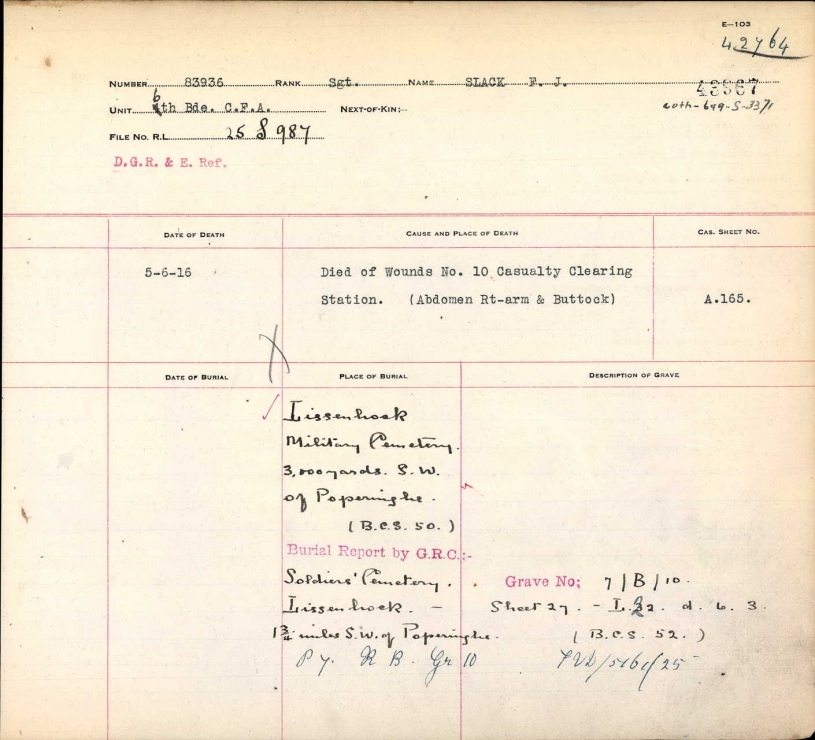 E-103
42764
NUMBER 83936 RANK Sgt. NAME SLACK F. J.
43967
UNIT 6th Bde. C.F.A. NEXT-OF-KIN;-
649-S-3371
FILE No. R.L. 25 S 987
D.G.R. & E. Ref.
DATE OF DEATH CAUSE AND PLACE OF DEATH CAS. SHEET NO.
5-6-16 Died of Wounds No. 10 Casualty Clearing
Station. (Abdomen Rt-arm & Buttock) A.165.
DATE OF BURIAL PLACE OF BURIAL DESCRIPTION OF GRAVE
Lissenhoek
Military Cemetery.
3,000 yards. S.W.
of Poperinghe.
(B.C.S. 50.)
Burial Report by G.R.C.:-
Soldiers' Cemetery. Grave No; 7/B/10.
Lissenhoek. - Sheet 27. - L.32. d. 6. 3.
1 3/4 miles S.W. of Poperinghe. (B.C.S. 52.)
P 7. R B. Gr 10